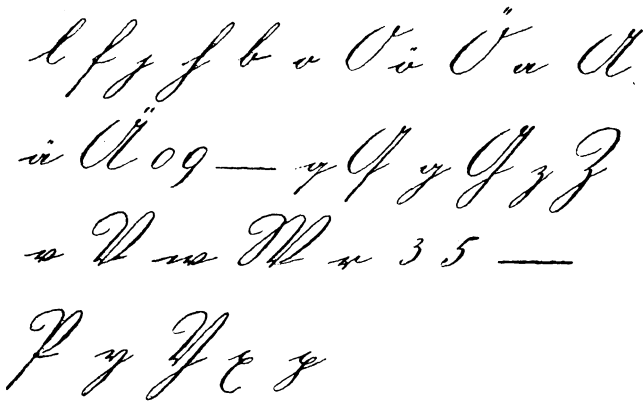 l f j h b o O ö Ö a A
ä Ä 0 9 — q Q g G z Z
v V w W r 3 5 —
P y Y x p